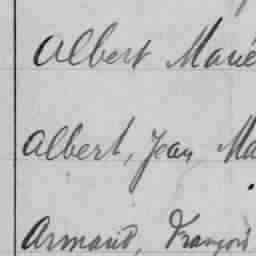 Albert Marie
Albert, Jean Ma
Armand, François